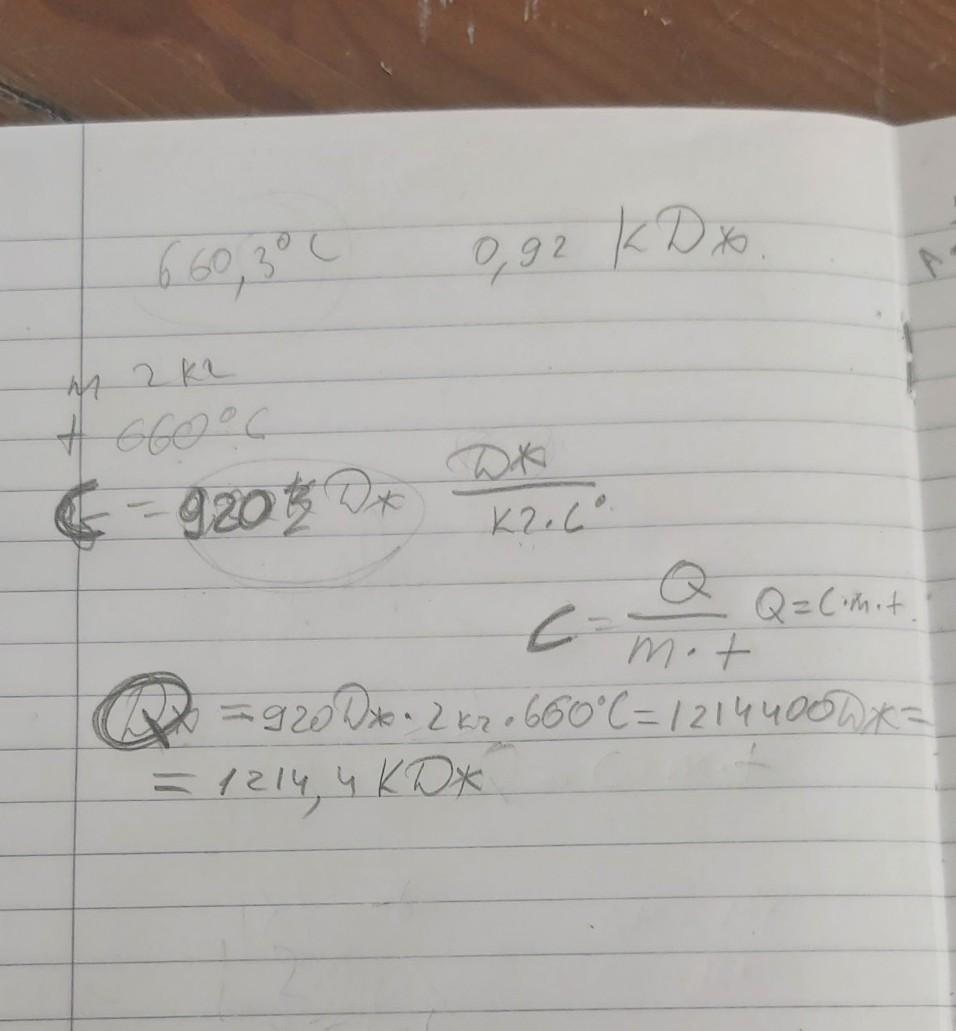 660,3°C 0,92 кДж.
m 2 кг
t 660°C
C = 920 Дж Дж/кг·C°
C = Q/m·t Q=C·m·t.
Q =920Дж·2кг·660°C=1214400Дж=
= 1214,4 КДж